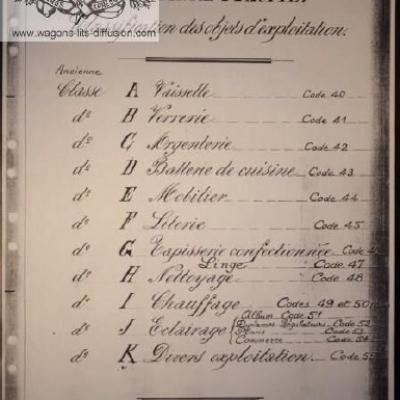 www.wagons-lits-diffusion.com
Classification des objets d'exploitation.
Ancienne
Classe A Vaisselle Code 40
do B Verrerie Code 41
do C Argenterie Code 42
do D Batterie de cuisine Code 43
do E Mobilier Code 44
do F Literie Code 45
do G Tapisserie confectionnée Code
Linge Code 47
do H Nettoyage Code 48
do I Chauffage Codes 49 et 50
Album Code 51
do J Eclairage Code 52
Code 53
Commerce Code 54
do K Divers exploitation Code 55